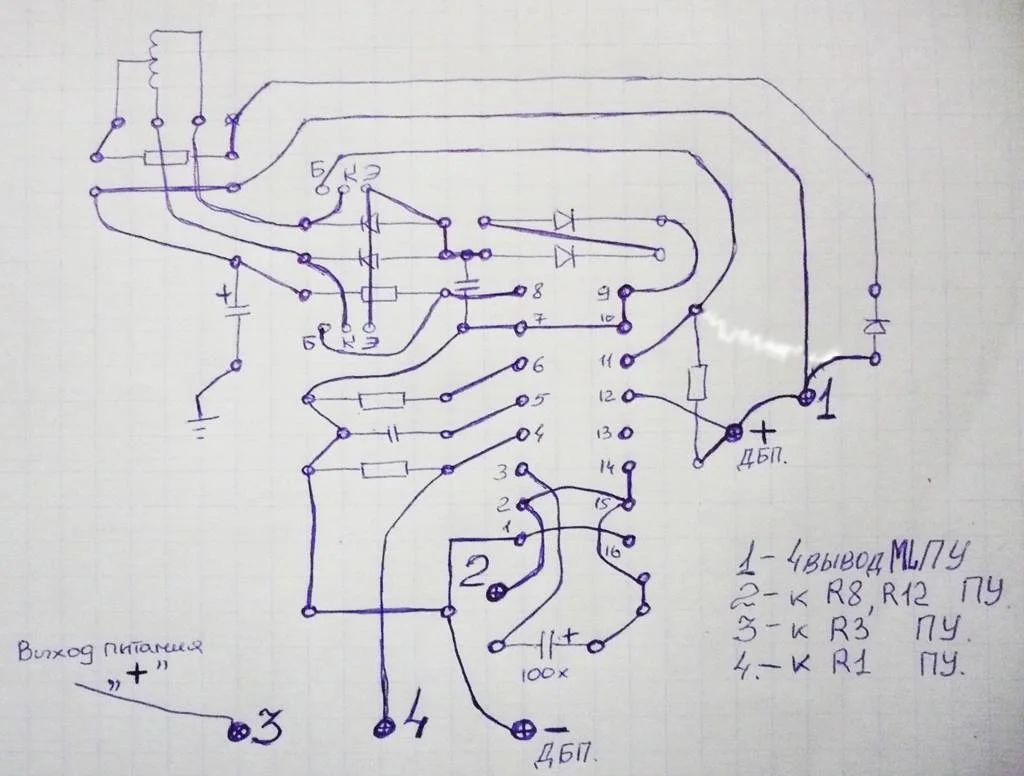 Б К Э
+
8 9
7 10
Б К Э
6 11
5 12
1
+
ДБП.
4 13
3 14
2 15
1 16
2
1 - 4 вывод ML ПУ
2 - к R8, R12 ПУ.
3 - к R3 ПУ.
4. - к R1 ПУ.
+
100x
Выход питания
„+”
3
4
-
ДБП.